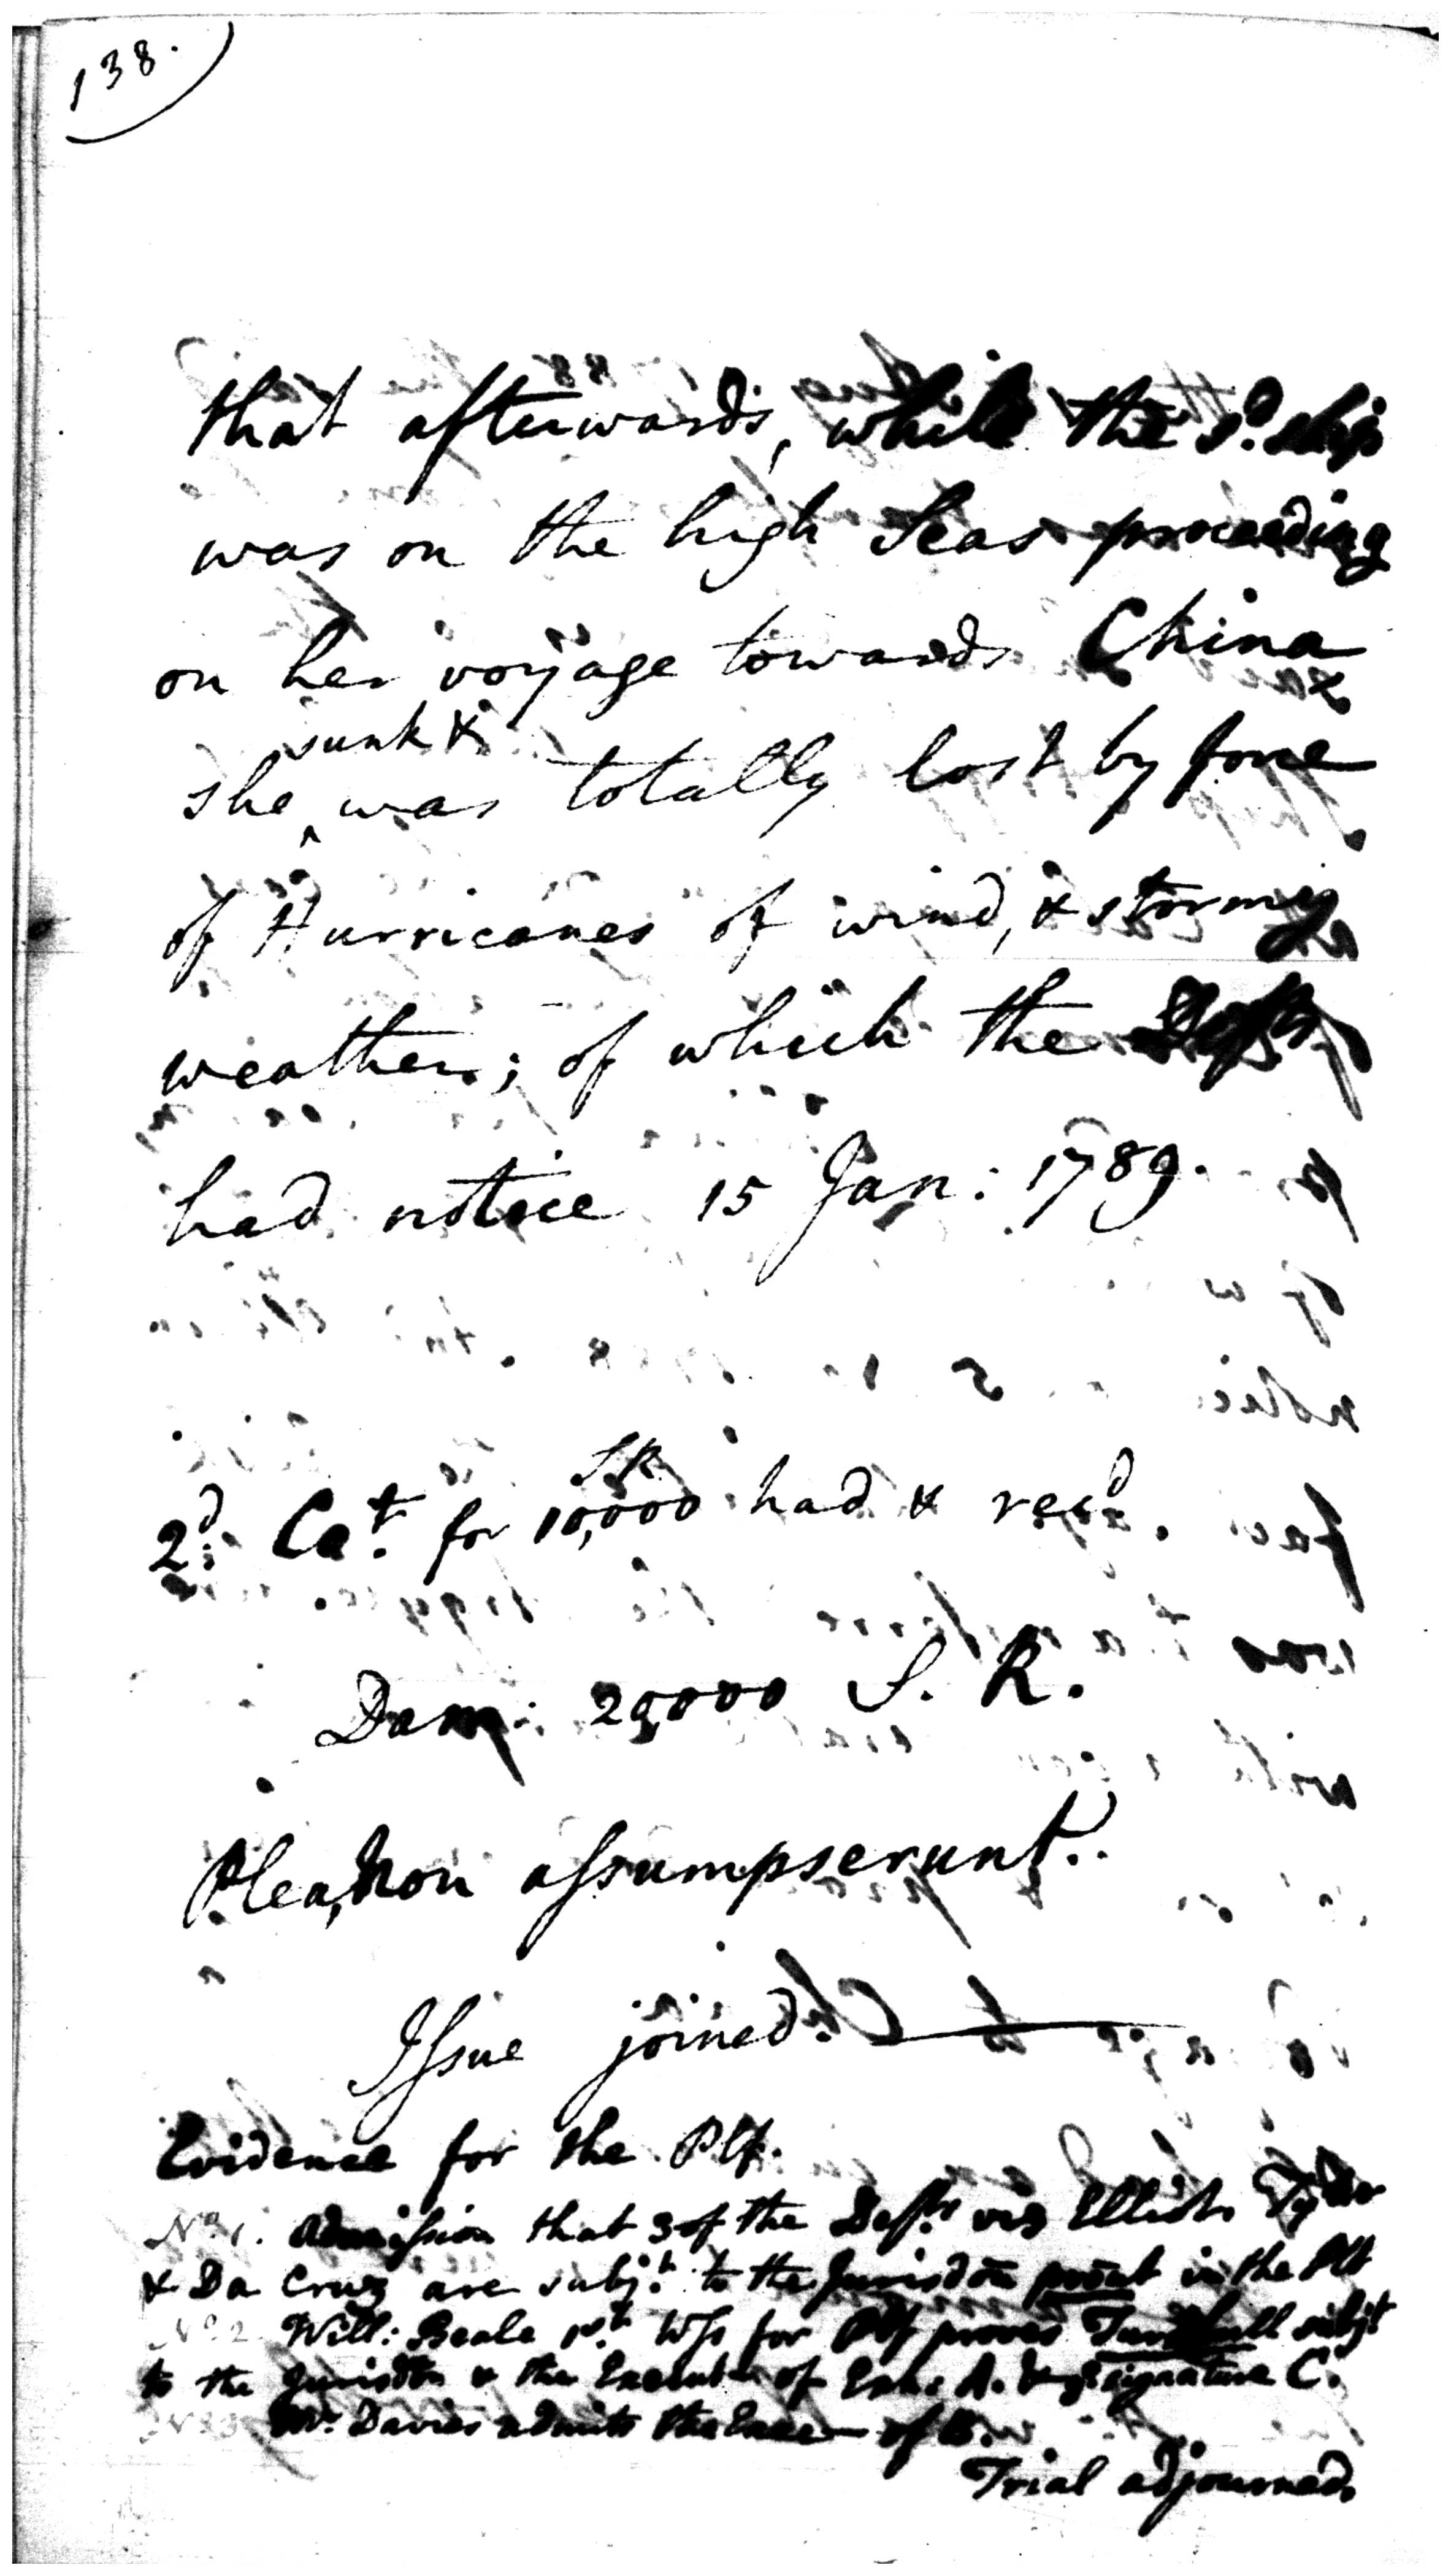 138.
that afterwards, while the sd. ship
was on the high Seas proceeding
on her voyage towards China
sunk &
she was totally lost by force
of Hurricanes of wind, & stormy
weather; of which the Defts
had notice 15 Jan: 1789.
S R
2d. Ct. for 10,000 had & recd.
Dam: 20000 S. R.
Plea, Non assumpserunt.
Issue joined.
Evidence for the Plf.
No. 1. Admission that 3 of the Defts. viz Elliot, Tyler
& Da Cruz are subjt. to the Jurisdon prout in the Plt
No. 2 Will: Beale 1st. Wss for Plf proves Turnbull subjt
to the Jurisdtn & the Execution of Exh. A. & signature C.
No. 3 Mr. Davies admits the Exec— of B.
Trial adjourned.